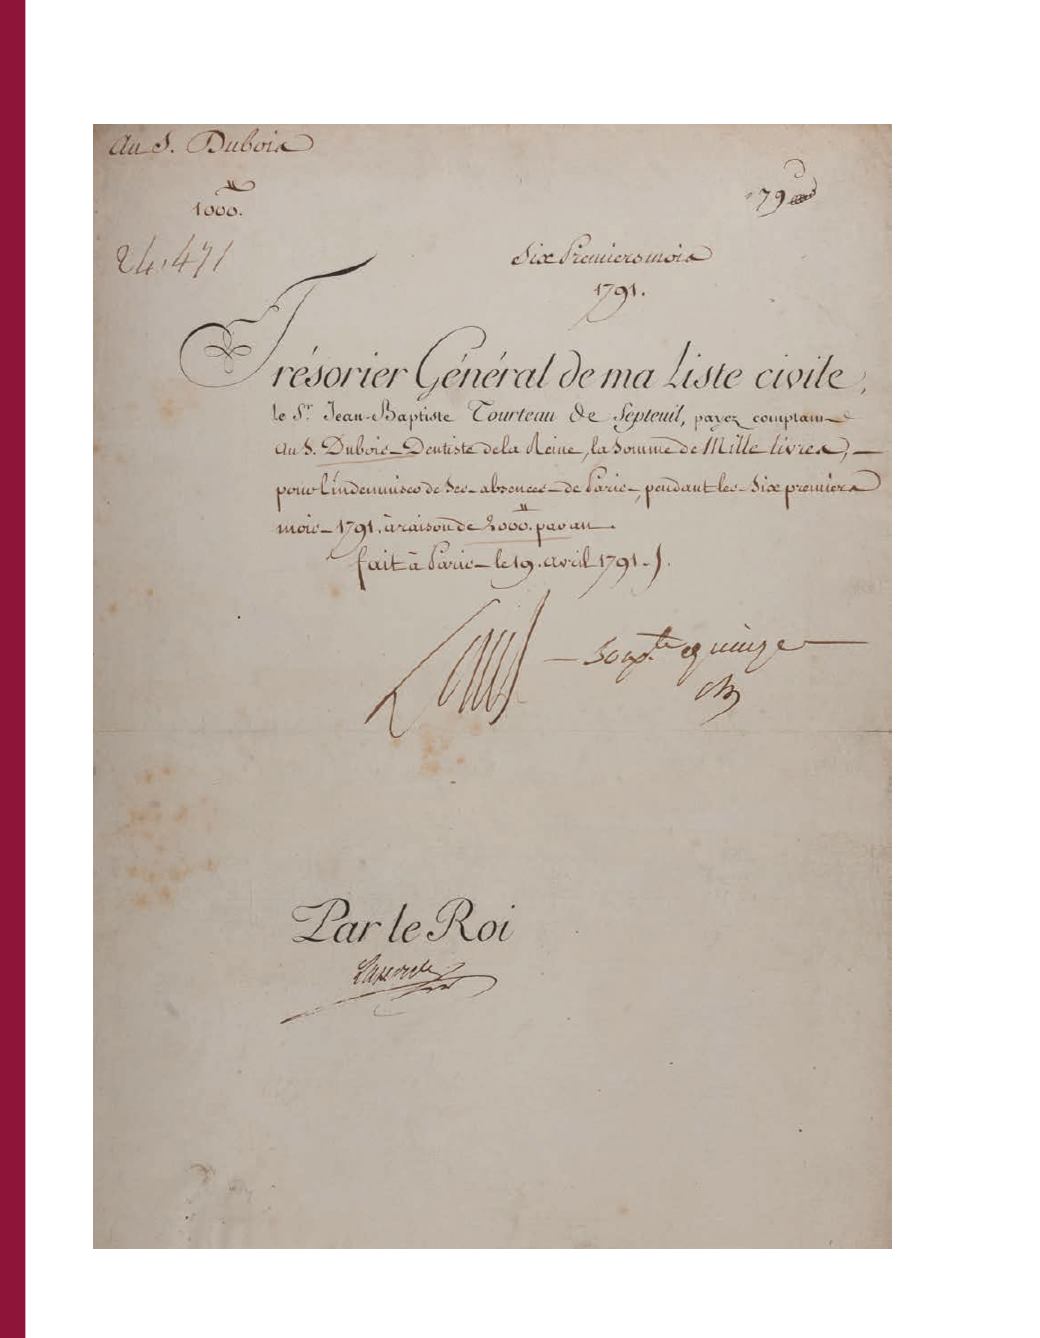 Au S. Dubois
1000.
79
24,471
Six Premiers mois
1791.
Trésorier Général de ma Liste civile,
le Sr. Jean-Baptiste Tourteau de Septeuil, payez comptant
au S. Dubois Dentiste de la Reine, la somme de Mille livres,
pour l'indemniser de ses absences de Paris, pendant les Six premiers
mois 1791. à raison de 2000.ᵗᵗ par an.
fait à Paris le 19. avril 1791.
Louis
Par le Roi
Laporte